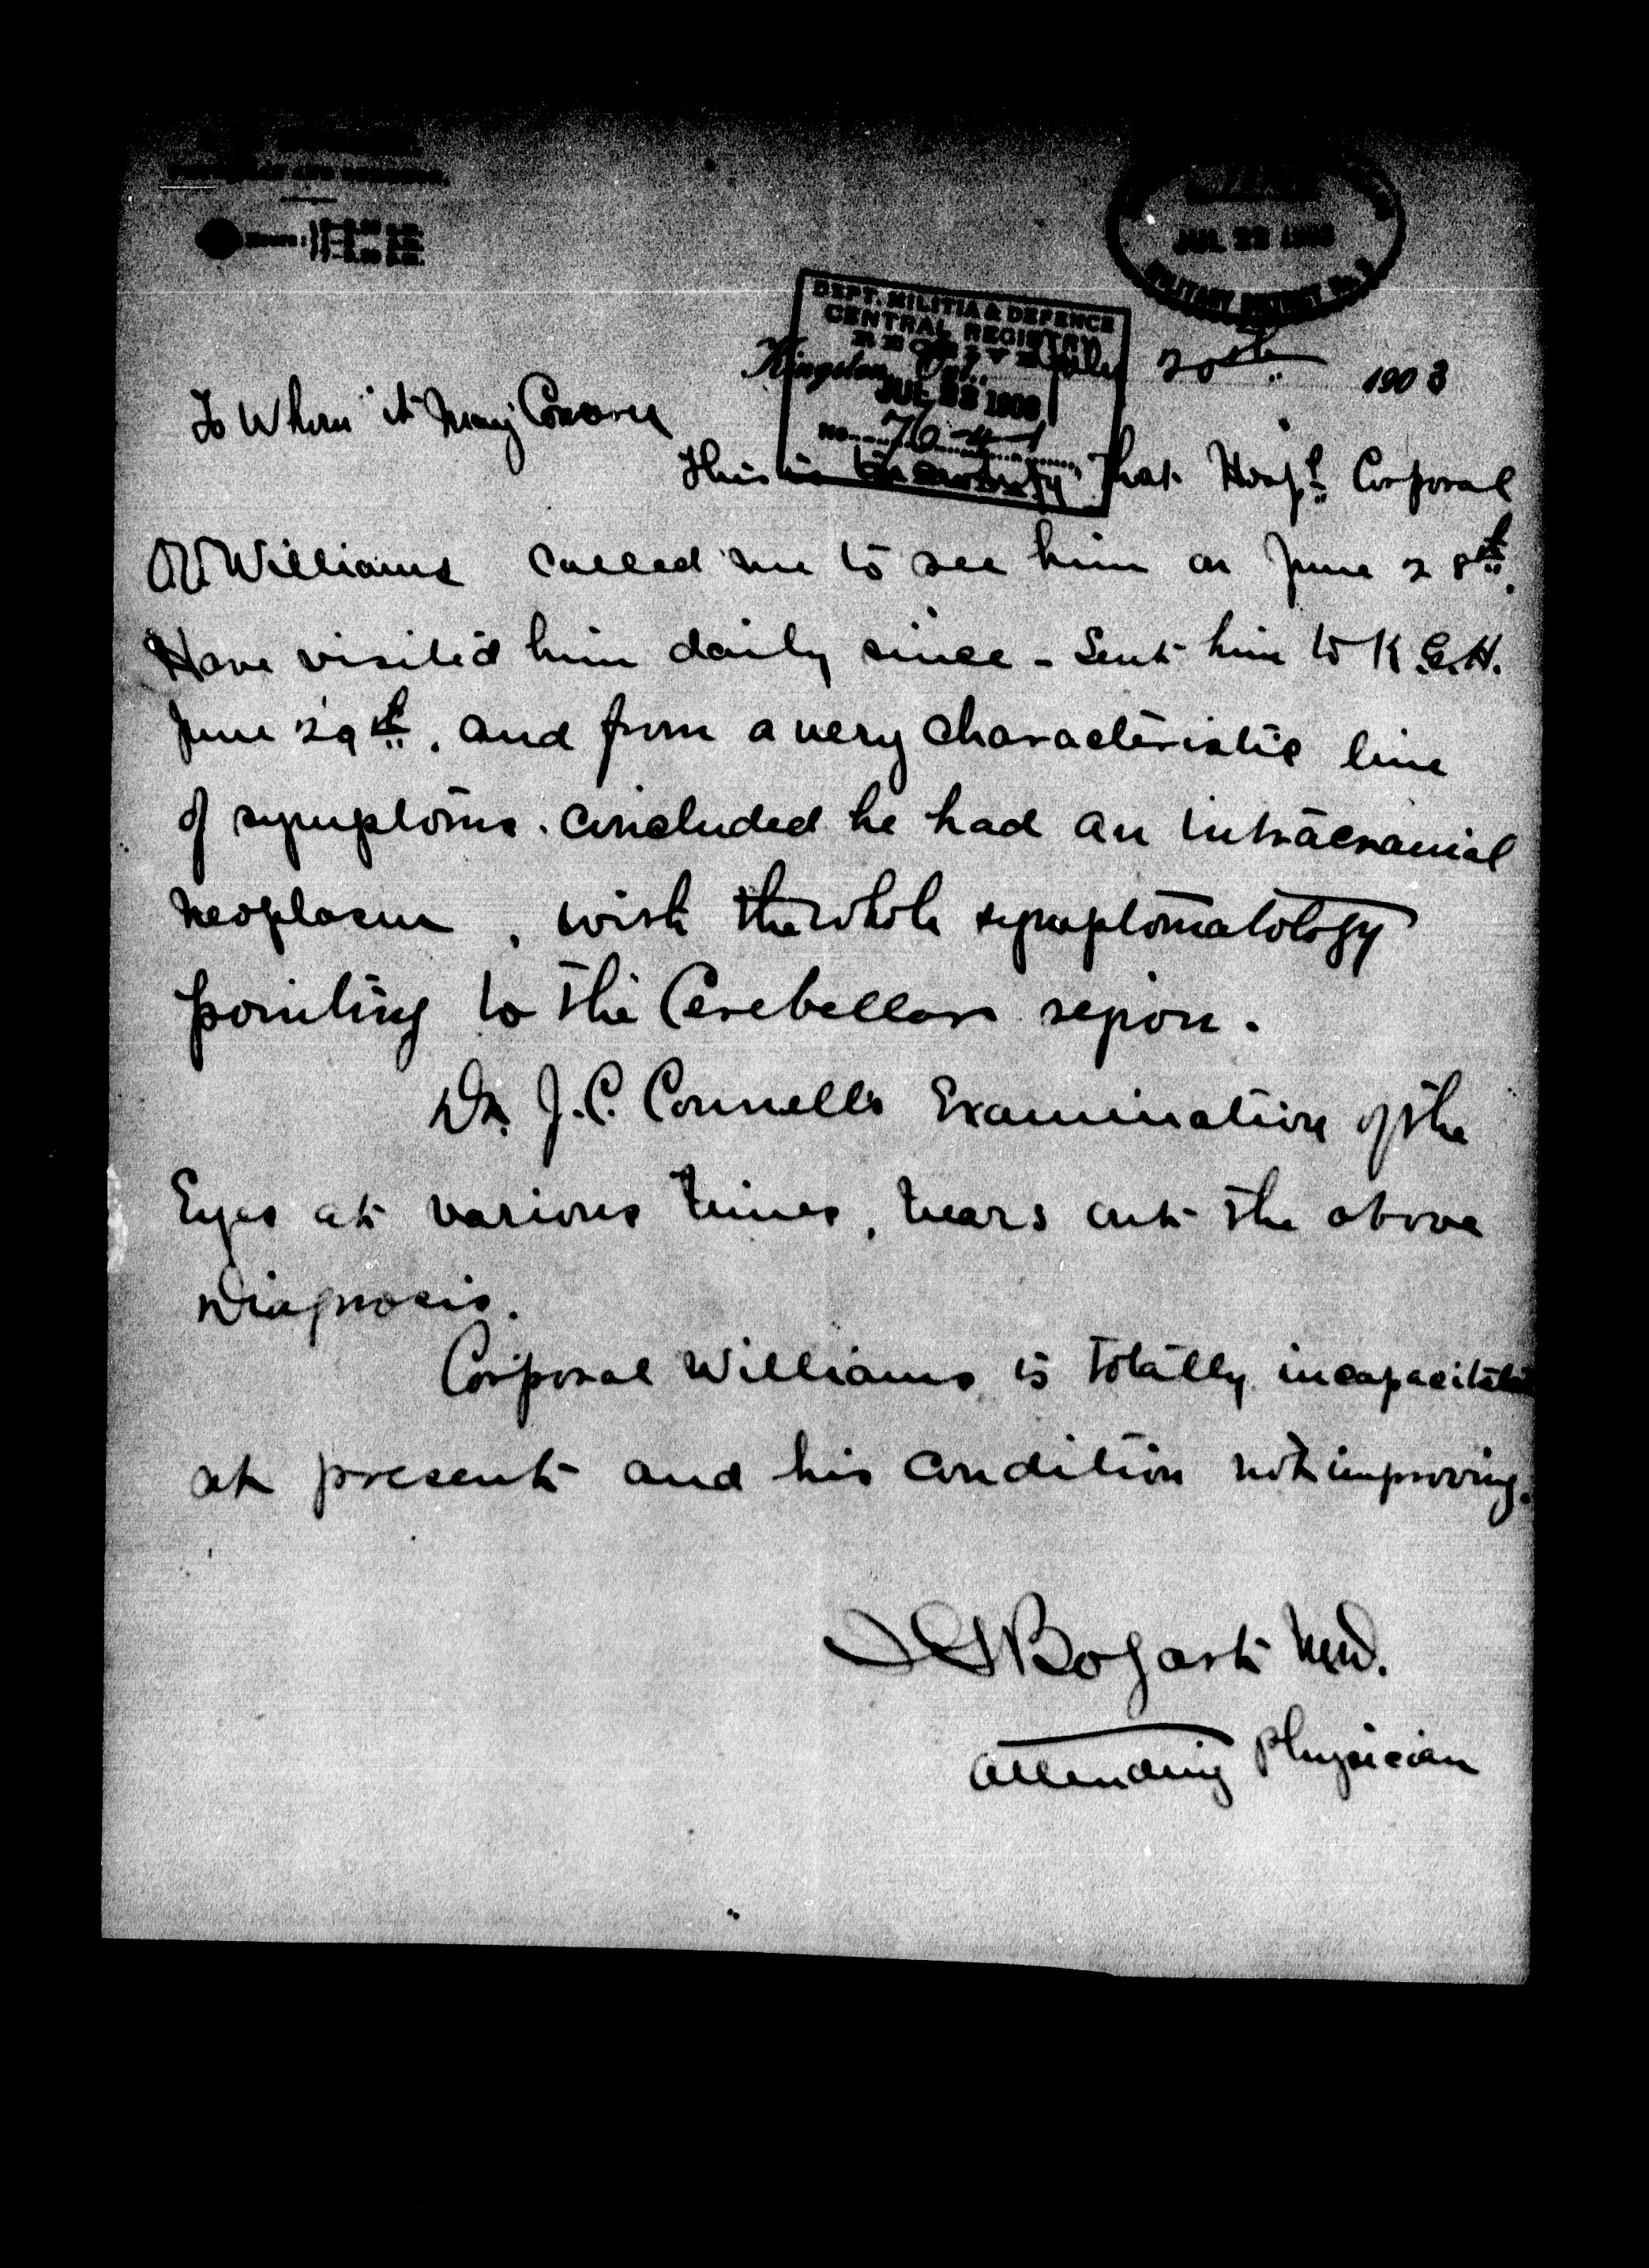 Hours:
JUL 22 190
MILITARY DISTRICT No. 3
DEPT. MILITIA & DEFENCE
CENTRAL REGISTRY
RECEIVED
JUL 23 190
No. 76-4-1
Kingston, Ont., July 20th 1903
To Whom it May Concern
This is to certify That Hosp'l Corporal
Williams called me to see him on June 28th.
Have visited him daily since - Sent him to K.G.H.
June 29th, and from a very characteristic line
of symptoms. concluded he had an intracranial
neoplasm, with the whole symptomatology
pointing to the Cerebellar region.
Dr. J.C. Connells Examination of the
Eyes at various times, bears out the above
Diagnosis.
Corporal Williams is totally incapacitated
at present and his condition not improving.
Bogart M.D.
Attending Physician